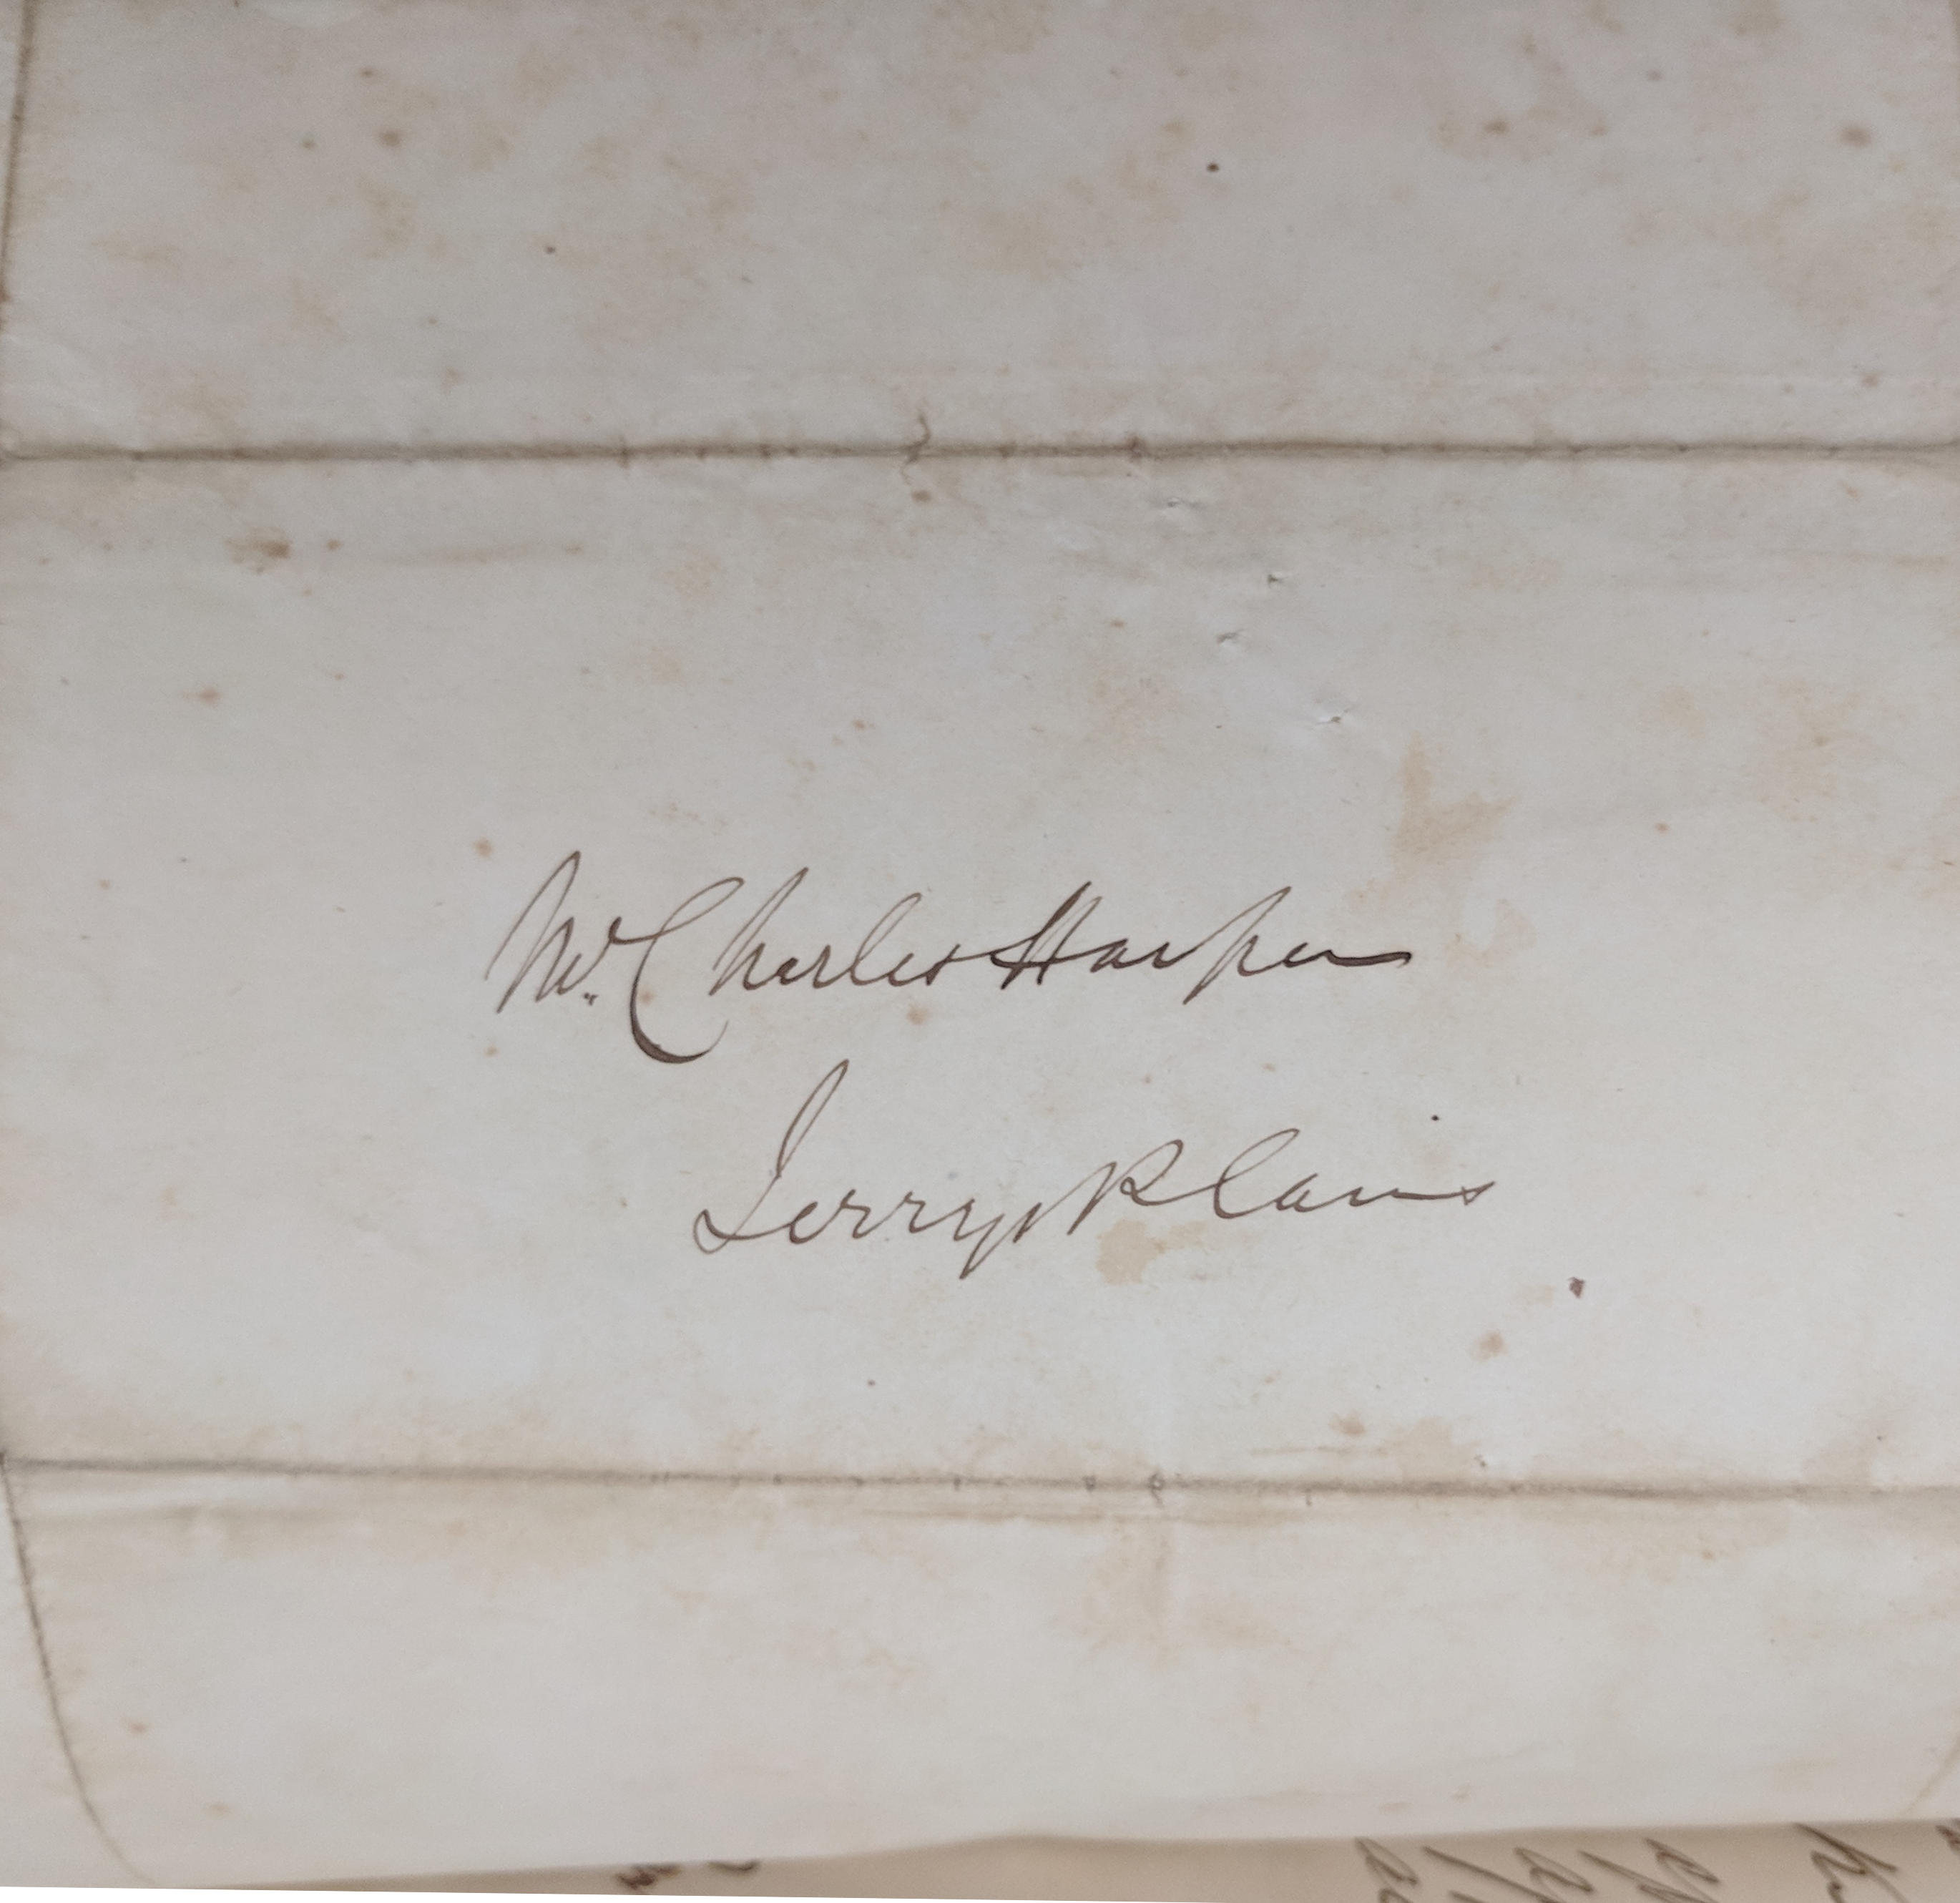 Mr. Charles Harper
Jerrys Plains